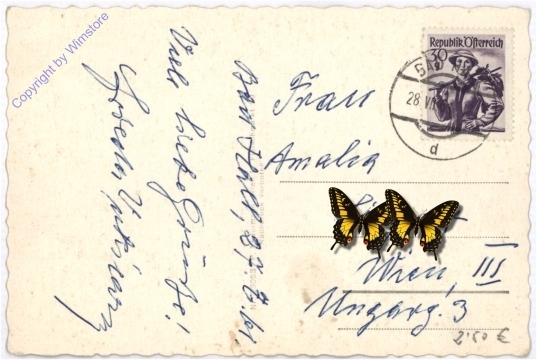 Copyright by Wimstore
Bad Hall, 27.8.61.
Viele liebe Grüße!
30
Republik Österreich
28.VIII
d
Frau
Amalia
Wien, III
Ungarg. 3
2'50 €